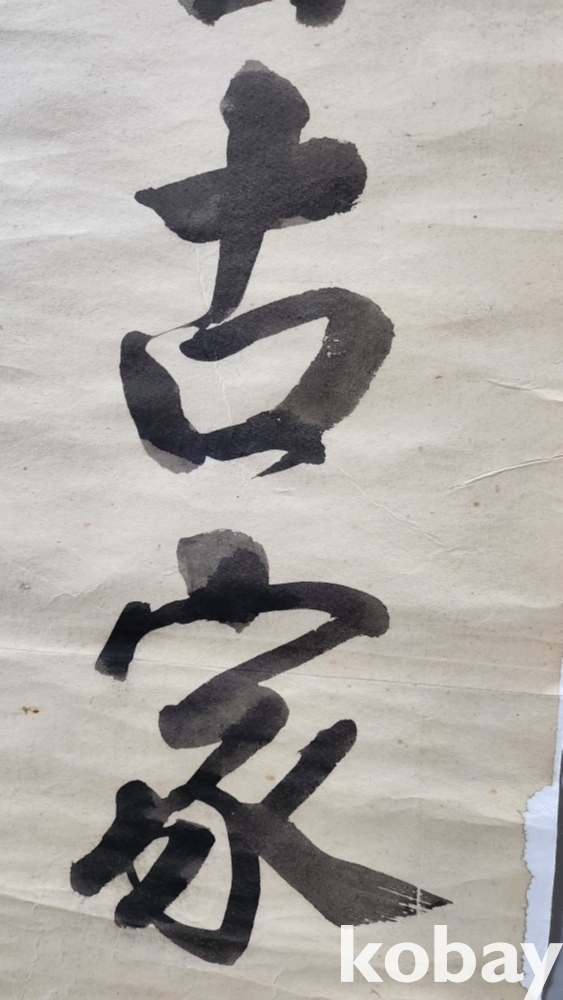 古家
kobay